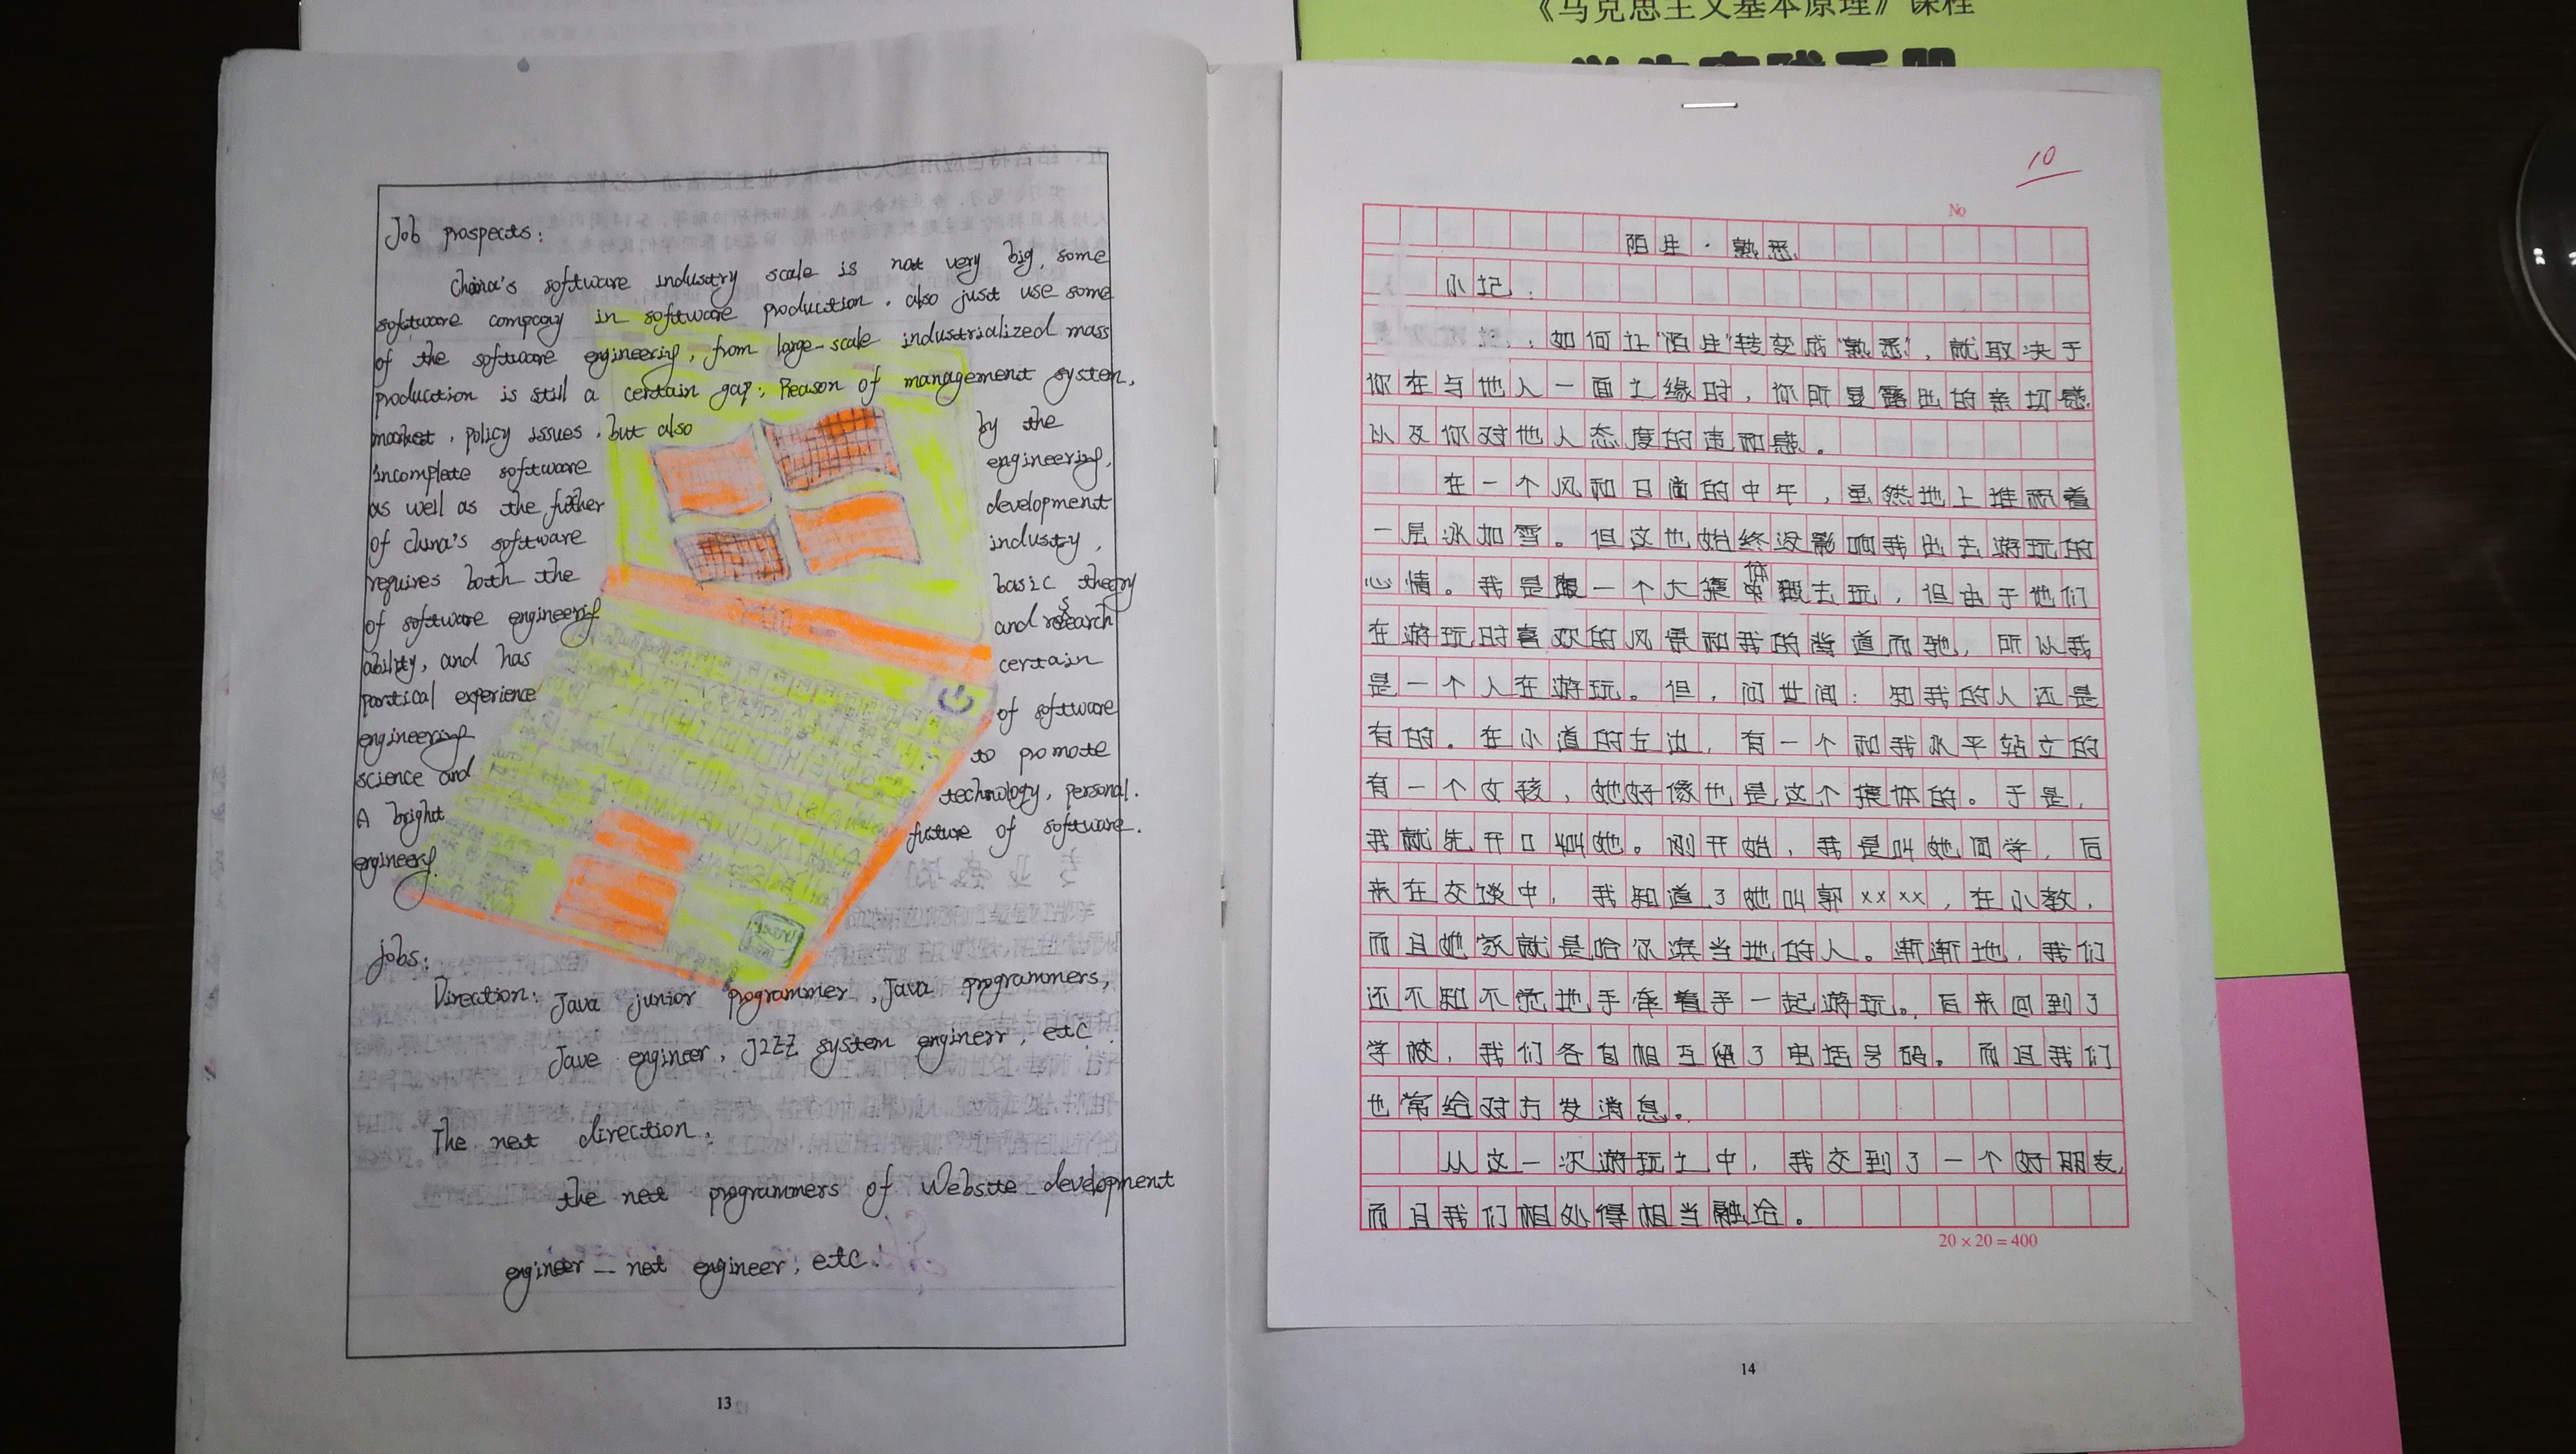 《马克思主义基本原理》课程
Job prospects:
China's software industry scale is not very big, some
software company in software production. also just use some
of the software engineering, from large-scale industrialized mass
production is still a certain gap; Reason of management system,
market, policy issues, but also by the
incomplete software engineering,
as well as the futher development
of China's software industry,
requires both the basic theory
of software engineering and research
ability, and has certain
partical experience of software
engineering to promote
science and technology, personal.
A bright future of software
engineering.
jobs:
Direction: Java junior programmer, Java programmers,
Jave engineer, J2ZZ system enginerr, etc.
The net direction:
the net programmers of Website development
engineer — net engineer, etc.
13
10
No
陌生·熟悉
小记:
:如何让"陌生"转变成"熟悉",就取决于
你在与他人一面之缘时,你所显露出的亲切感,
以及你对他人态度的违和感。
在一个风和日丽的中午,虽然地上堆积着
一层冰加雪。但这也始终没影响我出去游玩的
心情。我是跟一个大集体去玩,但由于他们
在游玩时喜欢的风景和我的背道而驰,所以我
是一个人在游玩。但,问世间:知我的人还是
有的。在小道的左边,有一个和我水平站立的
有一个女孩,她好像也是这个集体的。于是,
我就先开口叫她。刚开始,我是叫她同学,后
来在交谈中,我知道了她叫郭××××,在小教,
而且她家就是哈尔滨当地的人。渐渐地,我们
还不知不觉地手牵着手一起游玩。后来回到了
学校,我们各自相互留了电话号码。而且我们
也常给对方发消息。
从这一次游玩之中,我交到了一个好朋友,
而且我们相处得相当融洽。
20×20=400
14